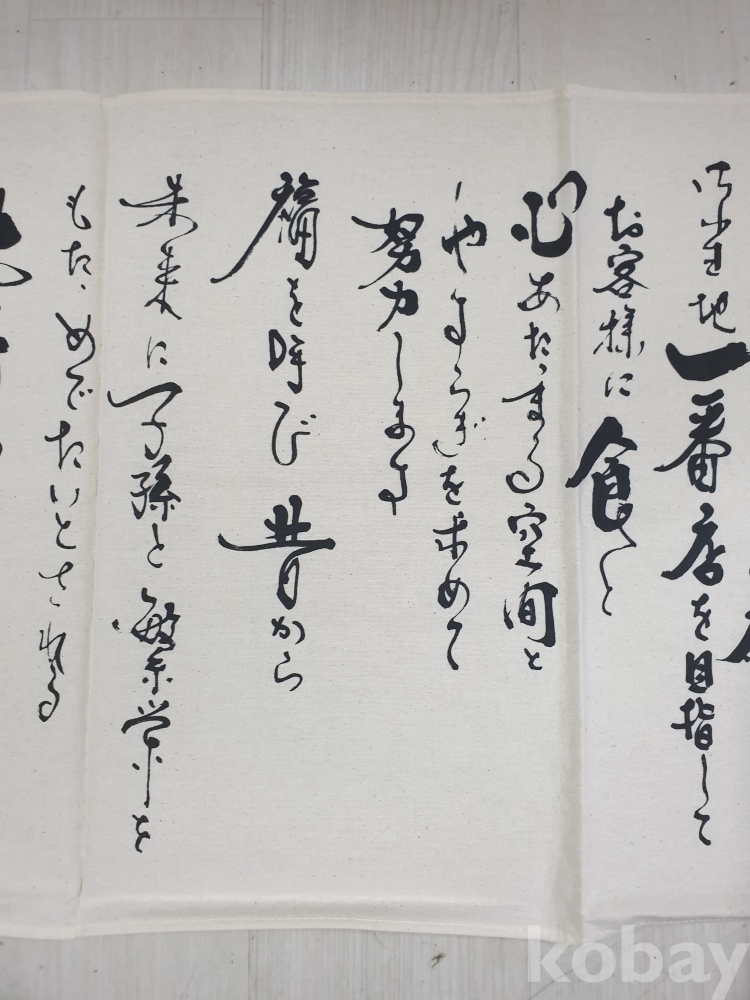 御当地一番店を目指して
お客様に食と
心あたゝまる空間と
やすらぎを求めて
努力します
福を呼び昔から
未来に子孫と繁栄を
もた めでたいとされる
kobay